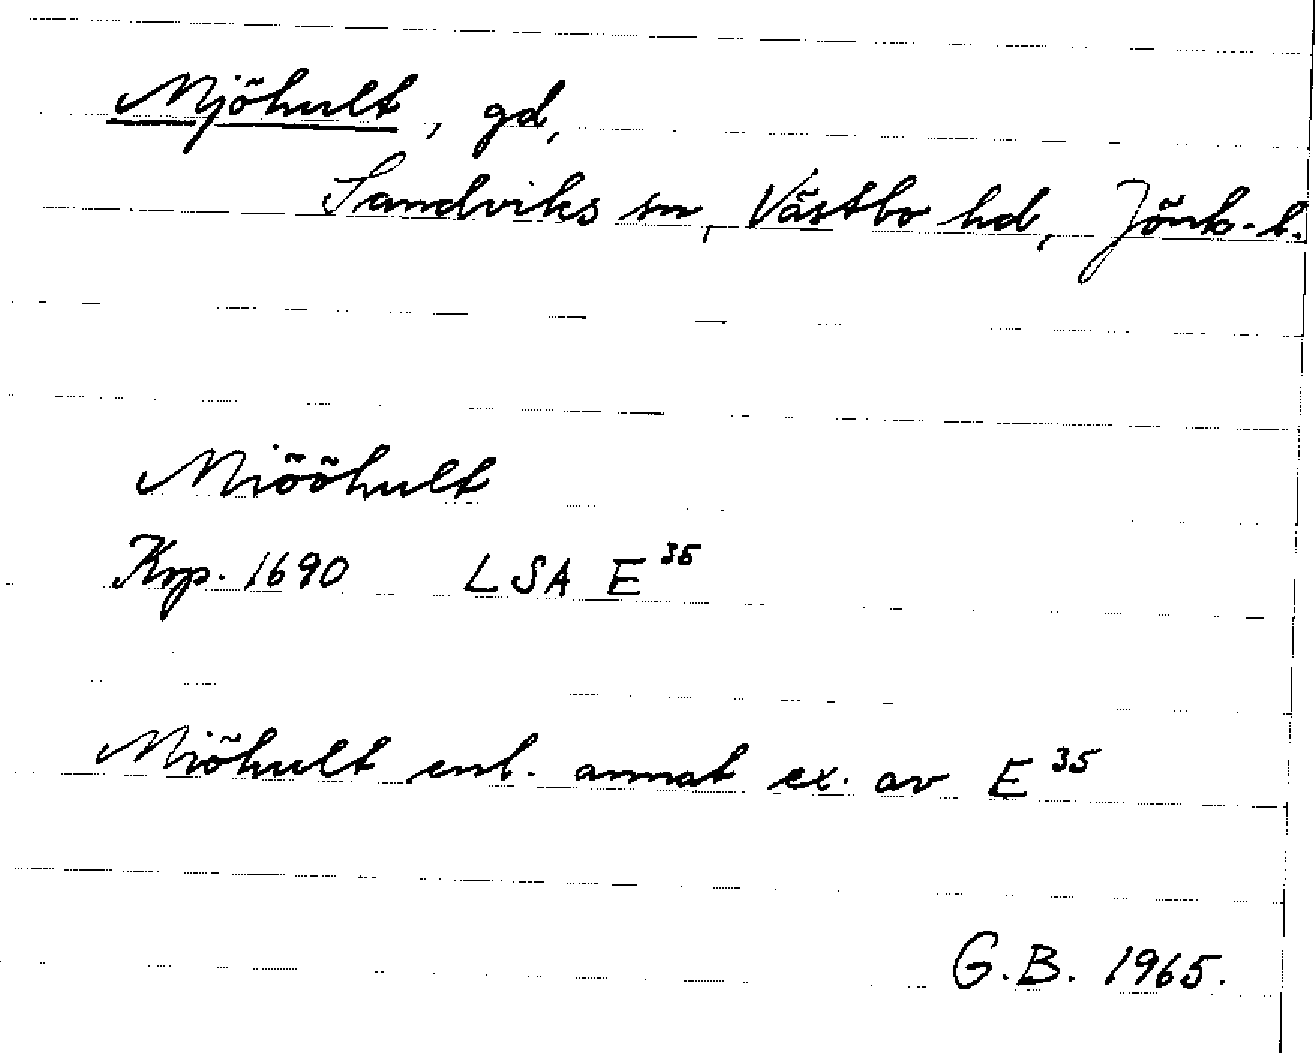 Mjöhult, gd,
Sandviks sn, Västbo hd, Jönk. l.
Miööhult
Krp. 1690 LSA E 35
Miöhult enl. annat ex. av E 35
G.B. 1965.